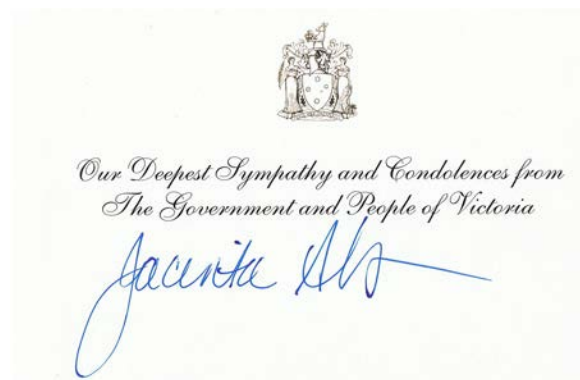 Our Deepest Sympathy and Condolences from
The Government and People of Victoria
Jacinta